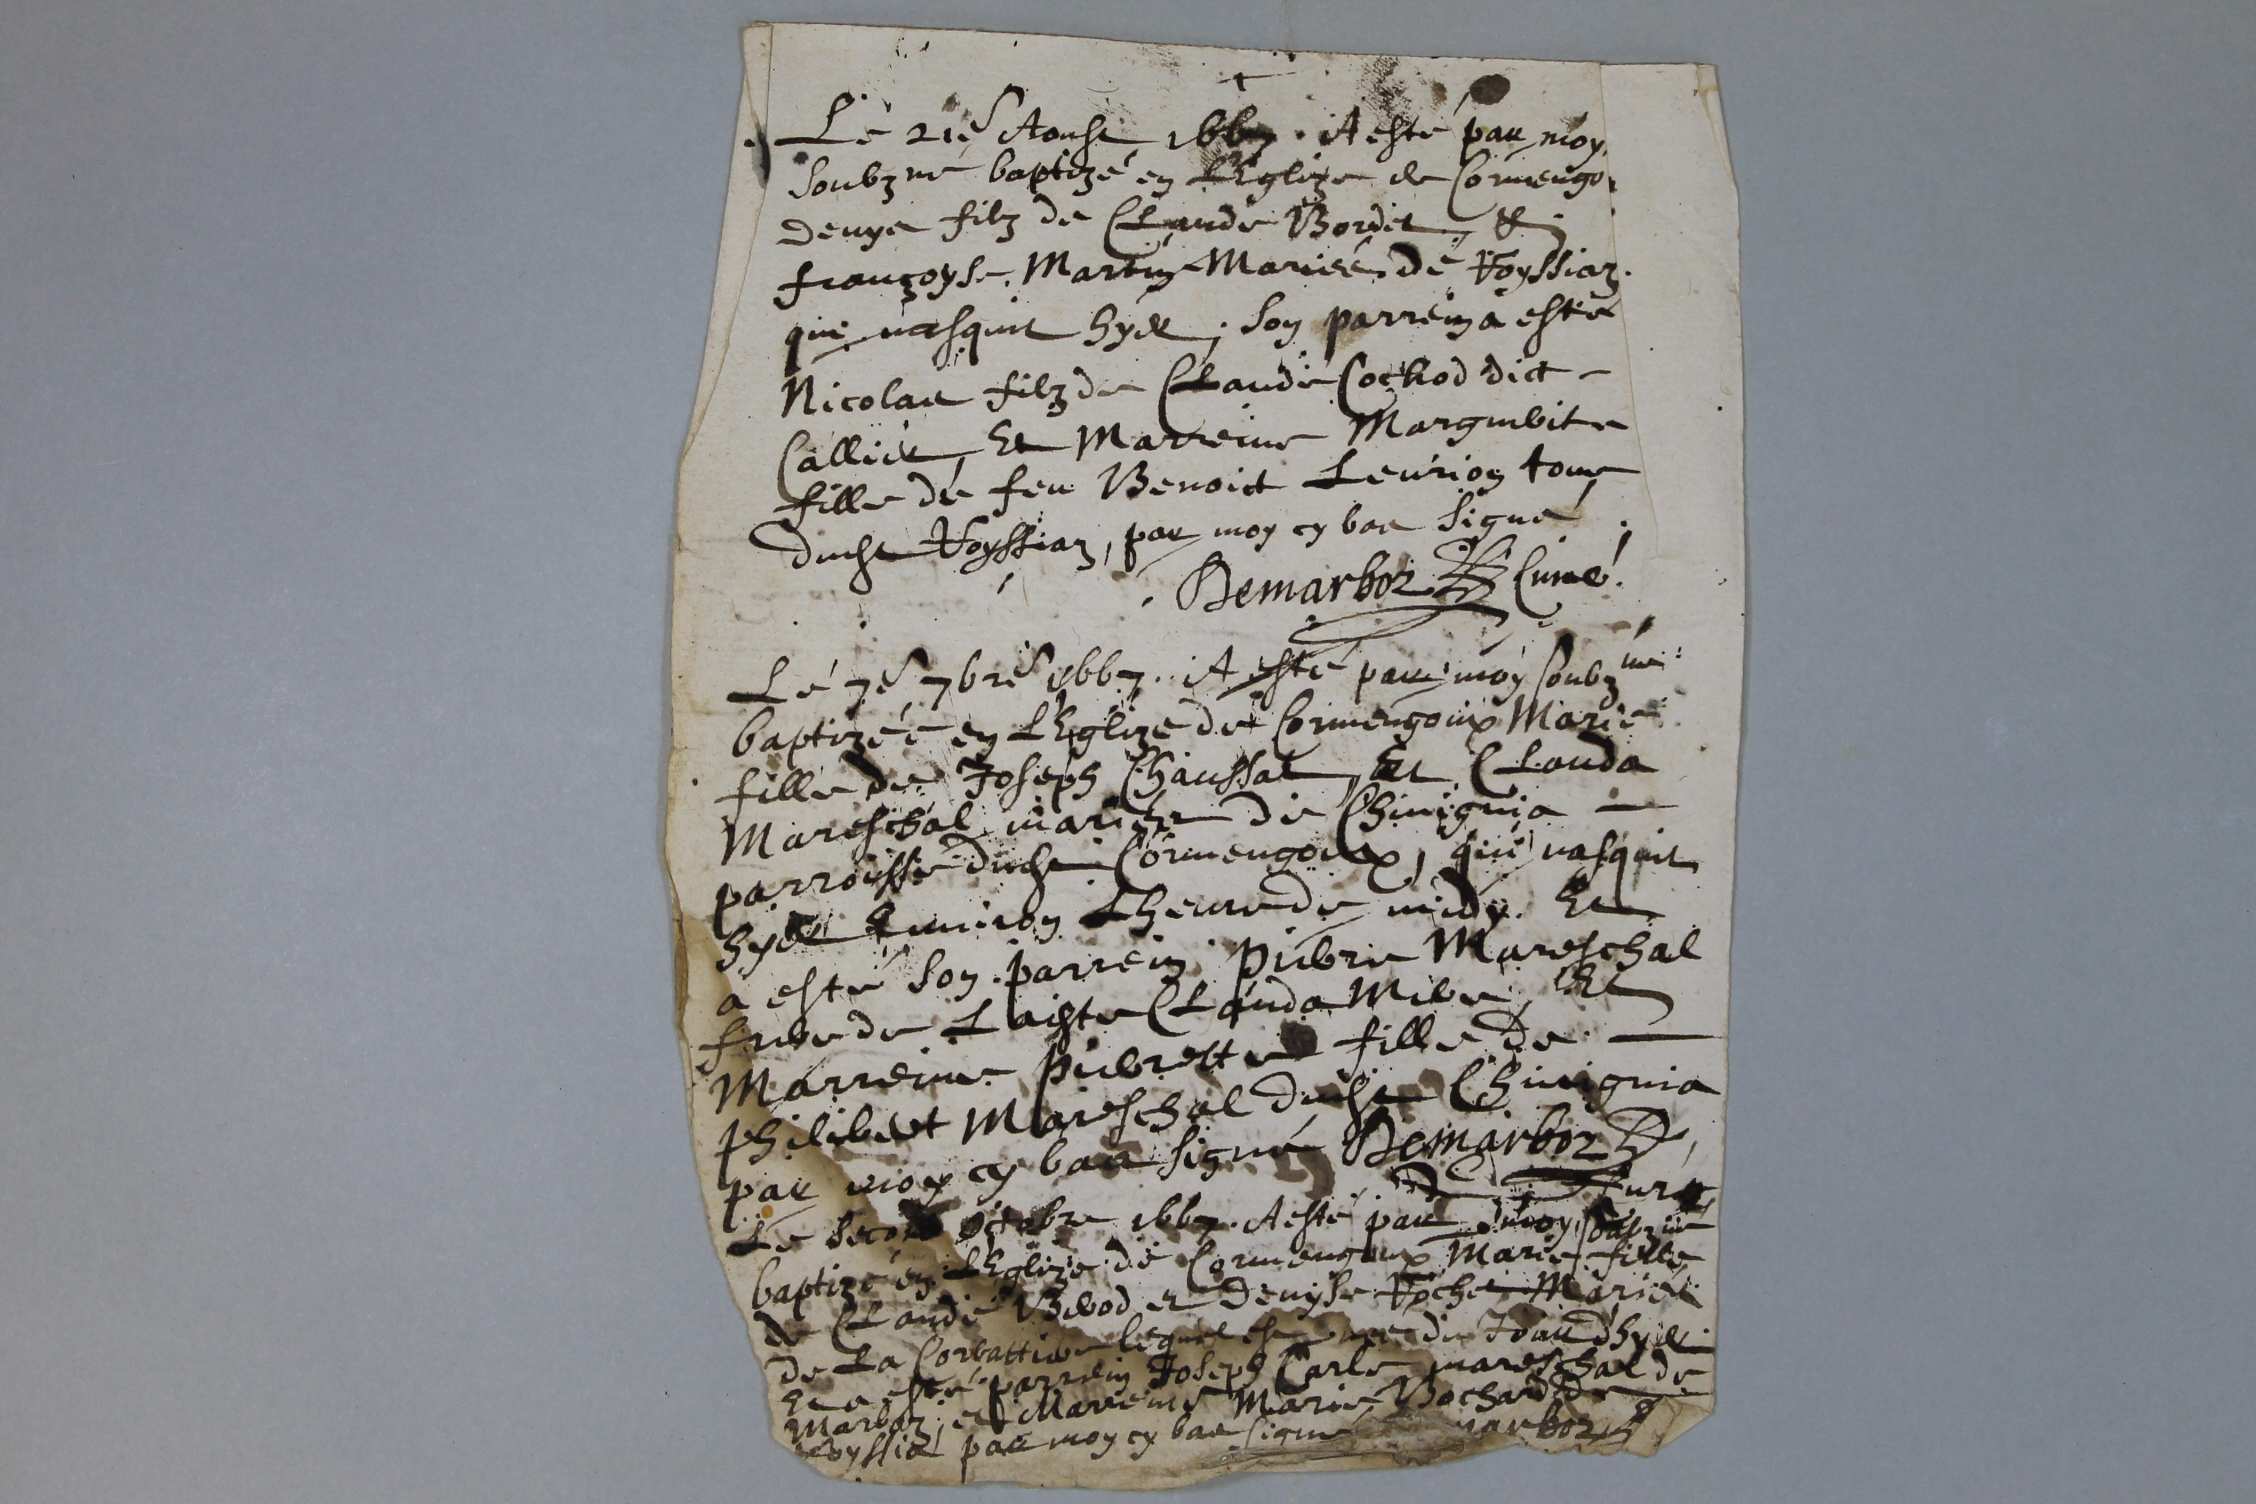 Le 21e Aoust 1667. A esté par moy
soubz né baptizé en L'Eglize de Cormengo
Denys filz de Claude Bordet, &
françoyse Martin Mariés de Voyssiaz.
qui nasquit hyer, son parrein a esté
Nicolas filz de Claude Cochod dict
Callier, Et Marreine Marguerite
fille de feu Benoict Leurion tous
duch Voyssiaz, par moy cy bas signé
Demarboz Curé.
Le 7e 7bre 1667. A esté par moy soubz né
baptizée en L'Eglize de Cormengoux Marie
fille de Joseph Chaussat, Et Clauda
Mareschal mariez de Chivignia
parroisse duch Cormengoux, qui nasquit
hyer Environ L'heure de midy. Et
a esté son parrein Pierre Mareschal
frere de Laiste Clauda Mere, Et
Marreine Pierrette fille de
Philibert Mareschal duch Chivignia
par moy cy bas signé Demarboz
Curé
Le second octobre 1667. A esté par moy soubz né
baptizé en L'Eglize de Cormengoux Marie fille
de Claude Berod et Denyse Mariés
de La Corbattiere lequel est née du Jour d'hyer
Et a esté parrein Joseph Carle mareschal de
Marboz, et Marreine Marie Bochard de
Voyssia par moy cy bas signé marboz